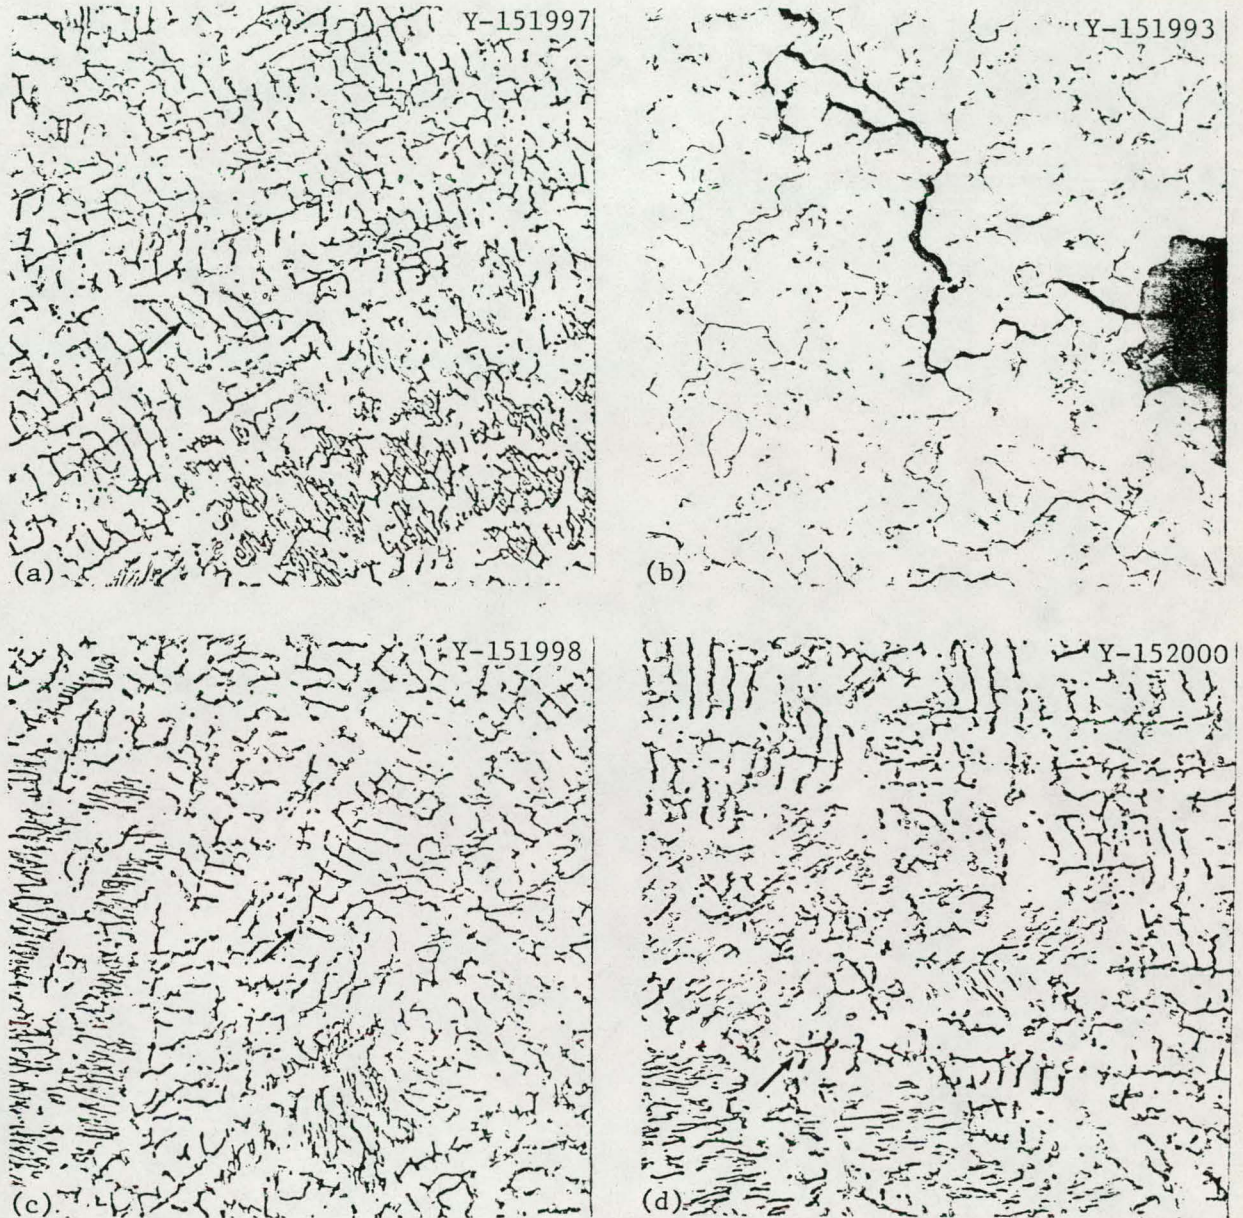 Y-151997
Y-151993
(a)
(b)
Y-151998
Y-152000
(c)
(d)